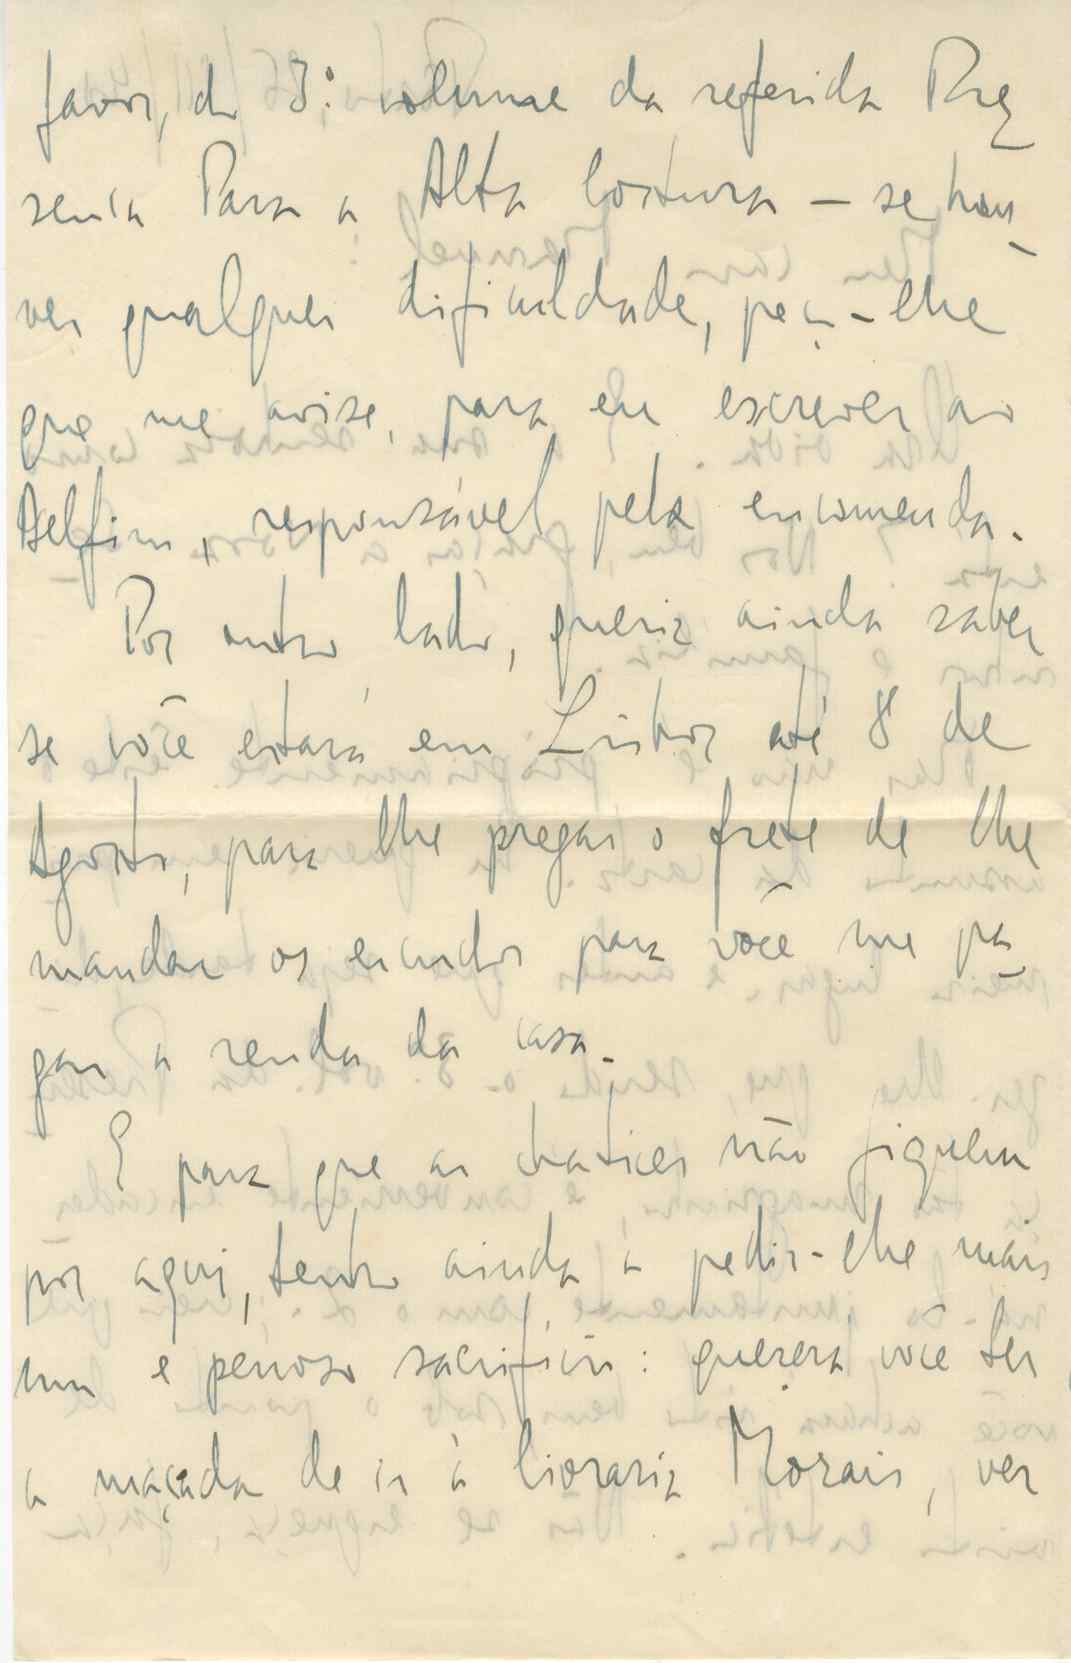 favor, do 3º volume da referida Pre
sença Para a Alta Costura – se hou
ver qualquer dificuldade, peço-lhe
que me avise, para eu escrever ao
Delfim, responsável pela encomenda.
Por outro lado, queria ainda saber
se você estará em Lisboa até 8 de
Agosto, para lhe pregar o frete de lhe
mandar os escudos para você me pa
gar a renda da casa.
E para que as chatices não fiquem
por aqui, tento ainda a pedir-lhe mais
um e penoso sacrifício: quererá você ter
a maçada de ir à livraria Morais, ver